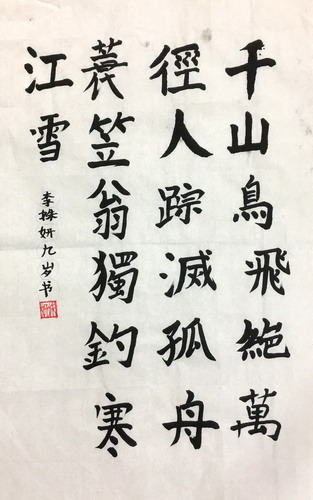 千山鳥飛絕萬
徑人踪滅孤舟
蓑笠翁獨釣寒
江雪
李姝妍九岁书